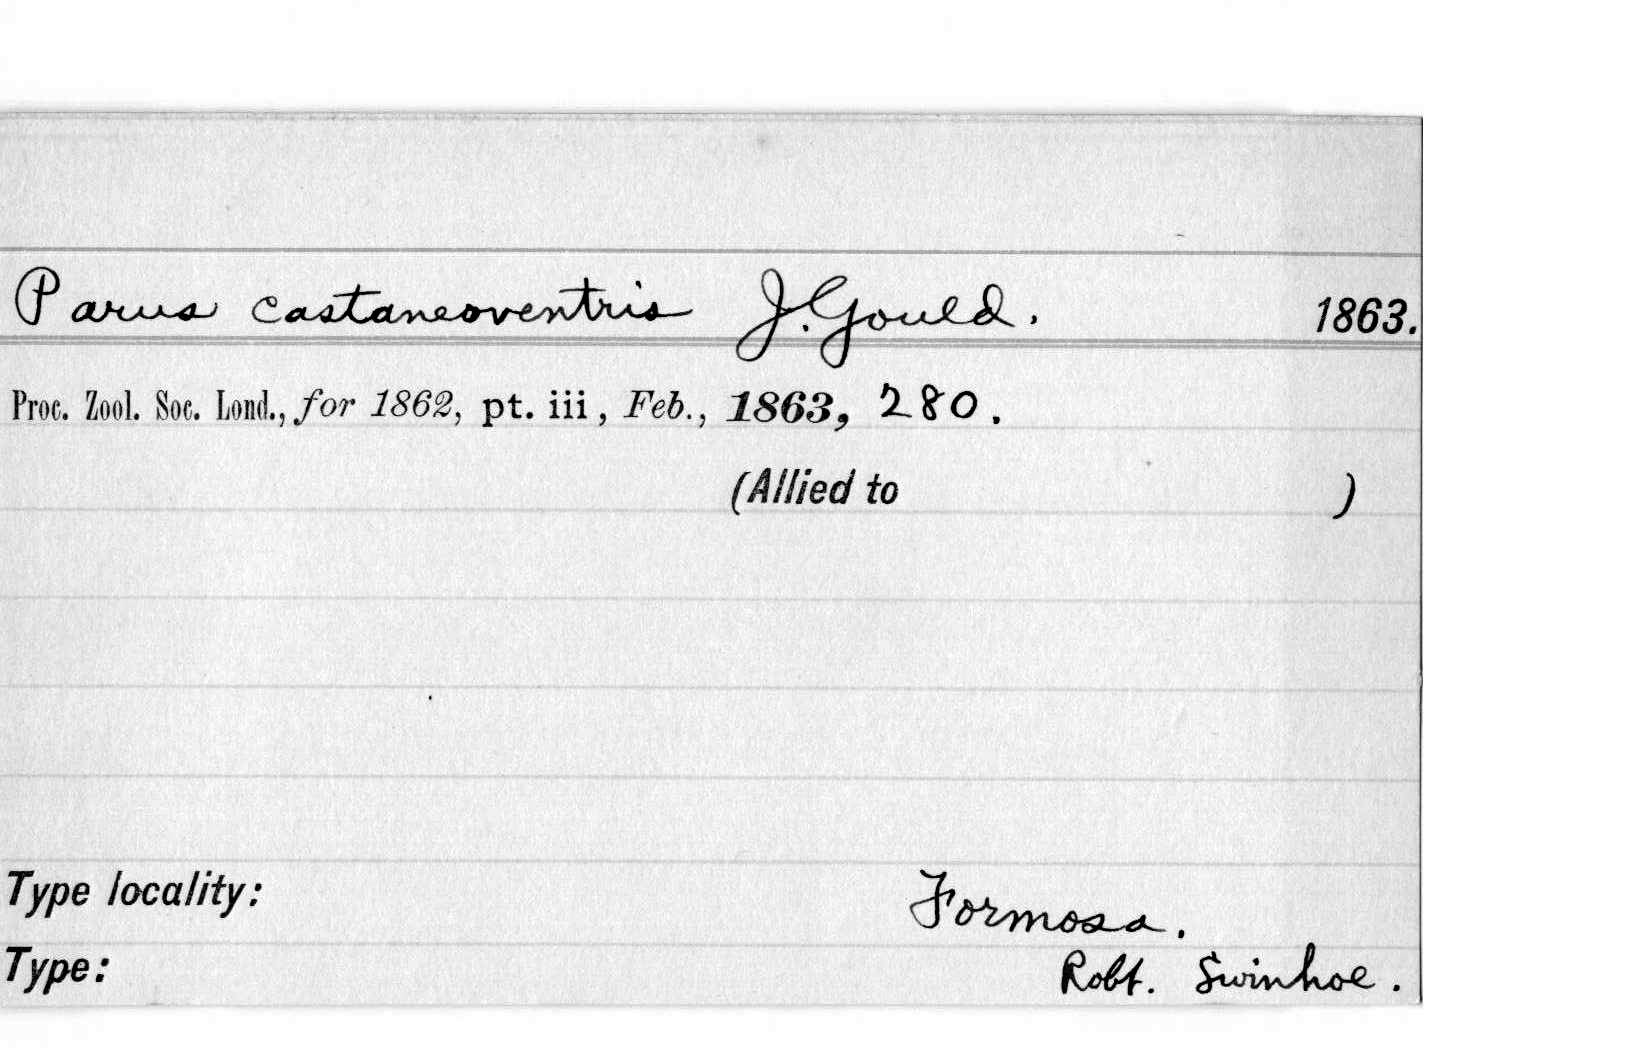 Parus castaneoventris J. Gould. 1863.
Proc. Zool. Soc. Lond., for 1862, pt. iii, Feb., 1863, 280.
(Allied to )
Type locality: Formosa.
Type: Robt. Swinhoe.